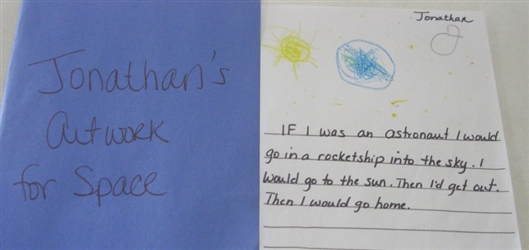 Jonathan's
Artwork
for Space
Jonathan
IF I was an astronaut I would
go in a rocketship into the sky. I
would go to the sun. Then I'd get out.
Then I would go home.